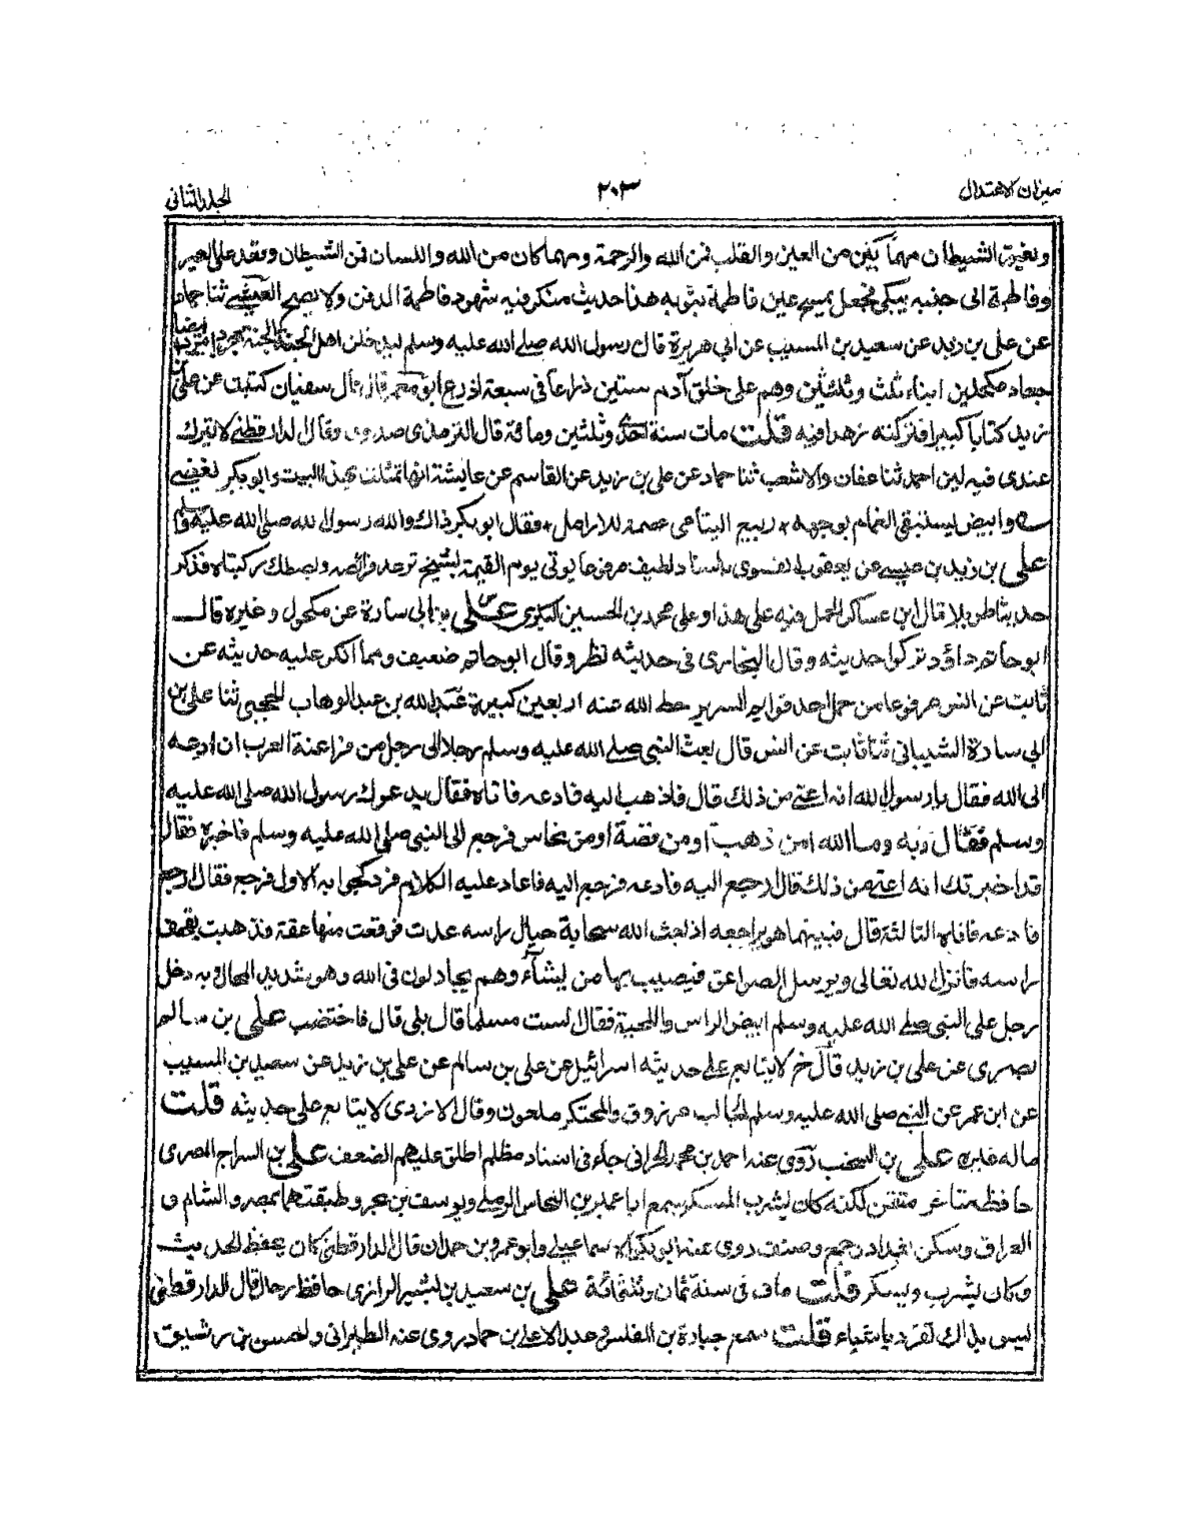 ميزان الاعتدال
٢٠٣
الجلد الثانى
ونغيق الشيطان مهما يكن من العين والقلب فمن الله والرحمة ومهما كان من الله واللسان فمن الشيطان وقعد على
وفاطمة الى جنبه تبكى فجعل يمسح عين فاطمة بثوبه هذا حديث منكر فيه شهود فاطمة الدفن ولا يصح العيشى ثنا حماد
عن على بن زيد عن سعيد بن المسيب عن ابى هريرة قال رسول الله صلى الله عليه وسلم ليدخلن اهل الجنة الجنة جردا مردا بيضا
جعادا مكحلين ابناء ثلث وثلثين وهم على خلق آدم ستين ذراعا فى سبعة اذرع ابو معمر قال قال سفيان كتبت عن على بن
زيد كتابا كبيرا فتركته زهدا فيه قلت مات سنة احدى وثلثين ومائة قال الترمذى صدوق وقال الدارقطنى لا يترك
عندى فيه لين احمد ثنا عفان والاشعب ثنا حماد عن على بن زيد عن القاسم عن عايشة انها تمثلت بهذا البيت وابو بكر يقضى
وابيض يستسقى الغمام بوجهه * ربيع اليتامى عصمة للارامل * فقال ابو بكر ذاك والله رسول الله صلى الله عليه وسلم
على بن زيد بن عيسى عن يعقوب الفسوى باسناد لطيف مرفوعا يوتى يوم القيمة بشيخ ترعد فرائصه وتصطك ركبتاه فذكر
حديثا طويلا قال ابن عساكر الحمل فيه على هذا او على محمد بن الحسين البكرى على بن ابى سارة عن مكحول وغيره قال
ابو حاتم داؤد تركوا حديثه وقال البخارى فى حديثه نظر وقال ابو حاتم ضعيف ومما انكر عليه حديثه عن
ثابت عن انس مرفوعا من حمل احد قوايم السرير حط الله عنه اربعين كبيرة عبد الله بن عبد الوهاب الحجبى ثنا على بن
ابى سارة الشيبانى ثنا ثابت عن انس قال بعث النبى صلى الله عليه وسلم رجلا الى رجل من فراعنة العرب ان ادعه
الى الله فقال يا رسول الله انه اعتى من ذلك قال فاذهب اليه فادعه فاتاه فقال يدعوك رسول الله صلى الله عليه
وسلم فقال وما الله امن ذهب او من فضة او من نحاس فرجع الى النبى صلى الله عليه وسلم فاخبره فقال
قد اخبرتك انه اعتى من ذلك قال ارجع اليه فادعه فرجع اليه فاعاد عليه الكلام فرد كجوابه الاول فرجع فقال ارجع
فادعه فاتاه الثالثة قال فبينما هو يراجعه اذ بعث الله سحابة حيال راسه رعدت فوقعت منها صاعقة فذهبت بقحف
راسه فانزل الله تعالى ويرسل الصواعق فيصيب بها من يشآء وهم يجادلون فى الله وهو شديد المحال وبه دخل
رجل على النبى صلى الله عليه وسلم ابيض الراس واللحية فقال لست مسلما قال بلى قال فاختضب على بن سالم
بصرى عن على بن زيد قال خ لا يتابع على حديثه اسرائيل عن على بن سالم عن على بن زيد عن سعيد بن المسيب
عن ابن عمر عن النبى صلى الله عليه وسلم الجالب مرزوق والمحتكر ملعون وقال الازدى لا يتابع على حديثه قلت
ماله غيره على بن السخت روى عنه احمد بن محمد الحرانى جاء فى اسناد مظلم اطلق عليهم الضعف على بن السراج المصرى
حافظ متاخر متقن لكنه كان يشرب المسكر سمع ابا عمير بن النحاس الرملى ويوسف بن بحر وطبقتهما بمصر والشام و
العراق وسكن بغداد وجمع وصنف روى عنه ابو بكر الاسماعيلى وابو عمرو بن حمدان قال الدارقطنى كان يحفظ الحديث
وكان يشرب ويسكر قلت مات فى سنة ثمان وثلثمائة على بن سعيد بن بشير الرازى حافظ رحال قال الدارقطنى
ليس بذاك تفرد باشياء قلت سمع جبارة بن المغلس وعبد الاعلى بن حماد روى عنه الطبرانى والحسن بن رشيق